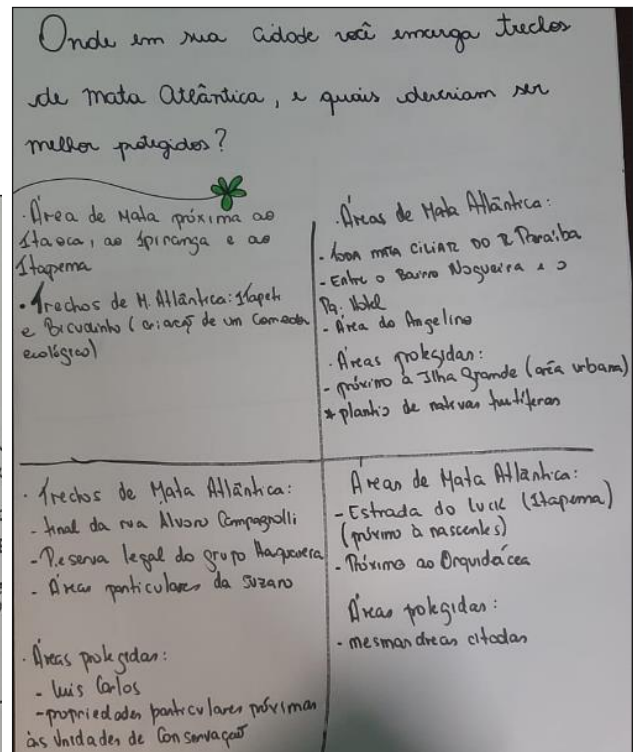 Onde em sua cidade você enxerga trechos
de Mata Atlântica, e quais deveriam ser
melhor protegidos?
· Área de Mata próxima ao
Itaoca, ao Ipiranga e ao
Itapema
· Trechos de M. Atlântica: Itapeti
e Bicudinho (criação de um Corredor
ecológico)
· Áreas de Mata Atlântica:
- toda mata CILIAR DO R Paraíba
- Entre o Bairro Nogueira e o
Pq.
- Área do Angelino
· Áreas protegidas:
- próximo à Ilha Grande (área urbana)
* plantio de nativas frutíferas
· Trechos de Mata Atlântica:
- final da rua Alvaro Campagnolli
- Reserva legal do grupo
- Áreas particulares da Suzano
· Áreas protegidas:
- Luis Carlos
- propriedades particulares próximas
às Unidades de Conservação
Áreas de Mata Atlântica:
- Estrada do (Itapema)
(próximo à nascentes)
- Próximo ao Orquidácea
Áreas protegidas:
- mesmas áreas citadas